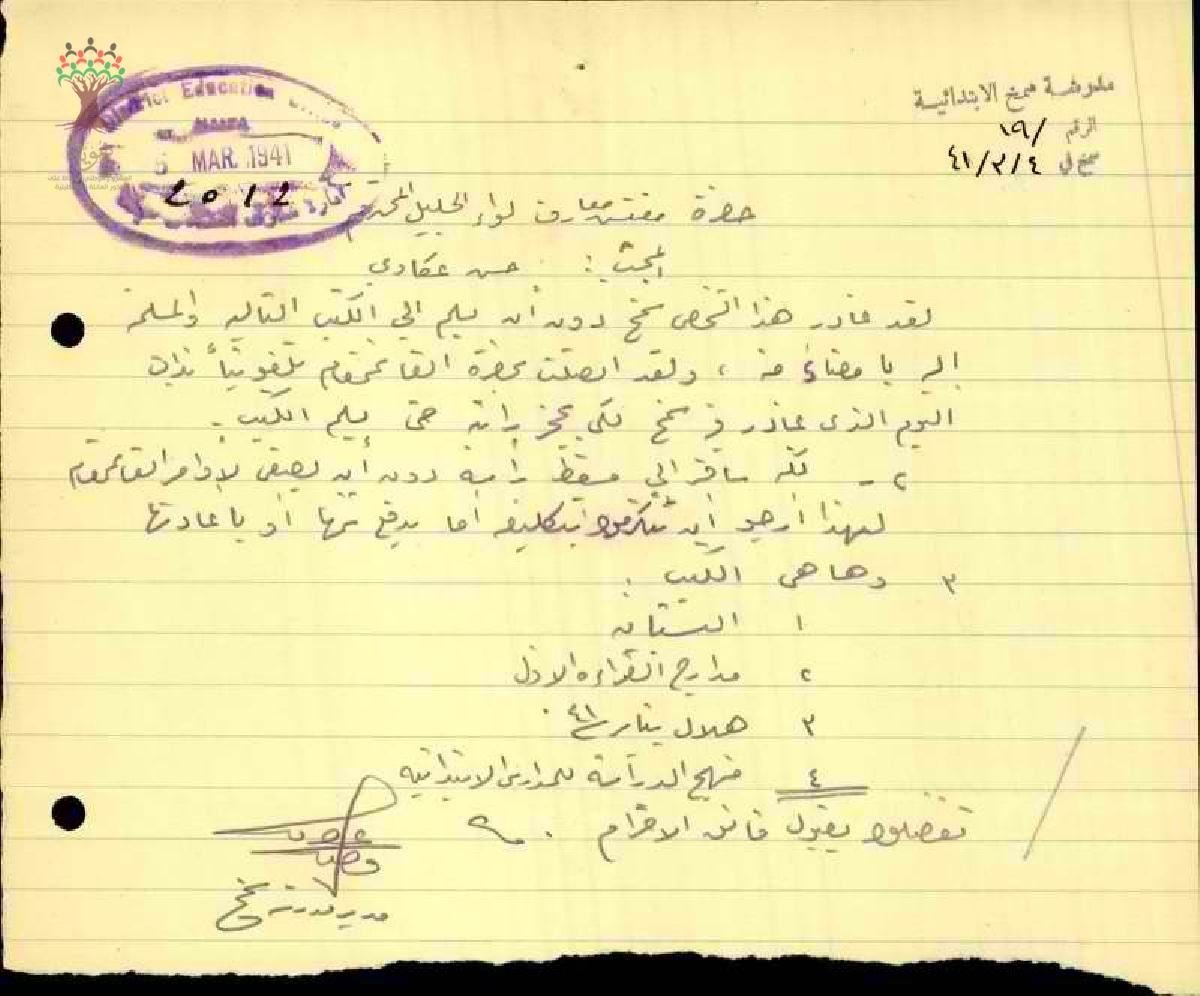 District Education Office
HAIFA
5 MAR. 1941
2012
مدرسة سمخ الابتدائية
الرقم /١٩
سمخ في ٤١/٣/٤
حضرة مفتش معارف لواء الجليل المحترم
المبحث : حسن عكاوي
لقد غادر هذا الشخص سمخ دون أن يسلم الي الكتب التالية والمسلمة
اليه بامضاء منه ، ولقد اتصلت بحضرة القائمقام تلفونياً بذات
اليوم الذي غادر فيه سمخ لكي يحجز راتبه حتى يسلم الكتب .
٢ - لكنه سافر الى مسقط رأسه دون أن يصغى لأوامر القائمقام
لهذا أرجو أن تتكرموا بتكليفه أما بدفع ثمنها أو باعادتها
٣ وها هي الكتب :
١ البستان
٢ مدارج القراءة الاول
٣ هلال يناير ٤١ .
٤ منهج الدراسة للمدارس الابتدائية
تفضلوا بقبول فائق الاحترام .
مدير مدرسة سمخ